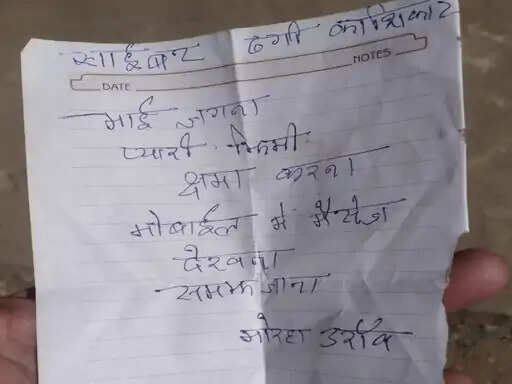 साईबर ठगी का शिकार
DATE
NOTES
भाई जगना
प्यारी किमी
क्षमा करना
मोबाईल में मैसेज
देखना
समझ जाना
उराँव